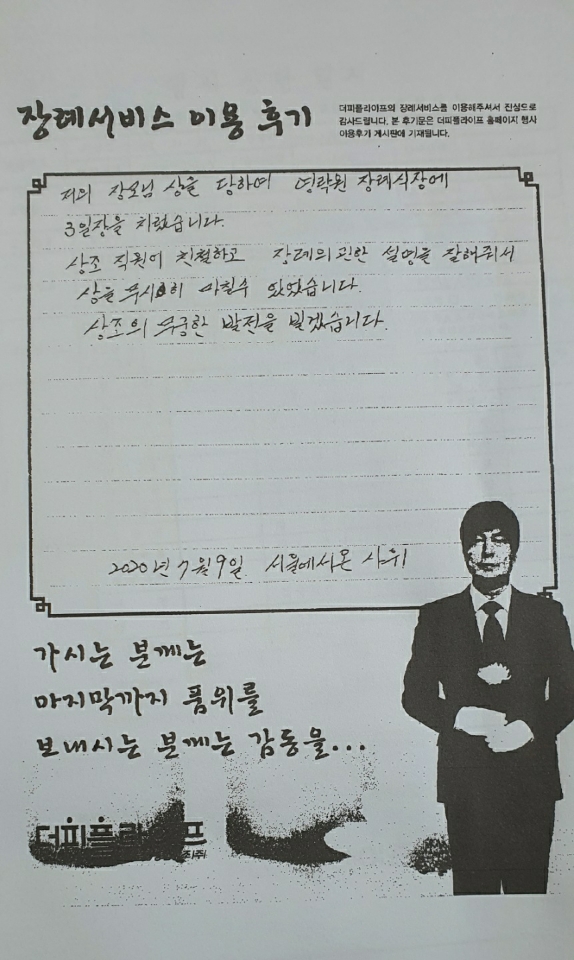 장례서비스 이용 후기
더피플라이프의 장례서비스를 이용해주셔서 진심으로
감사드립니다. 본 후기문은 더피플라이프 홈페이지 행사
이용후기 게시판에 기재됩니다.
저의 장모님 상을 당하여 영락원 장례식장에
3일장을 치렀습니다.
상조 직원이 친절하고 장례의 관한 설명을 잘해줘서
상을 무사히 마칠수 있었습니다.
상조의 무궁한 발전을 빌겠습니다.
2020년 7월 9일 서울에서온 사위
가시는 분께는
마지막까지 품위를
보내시는 분께는 감동을...
더피플라이프